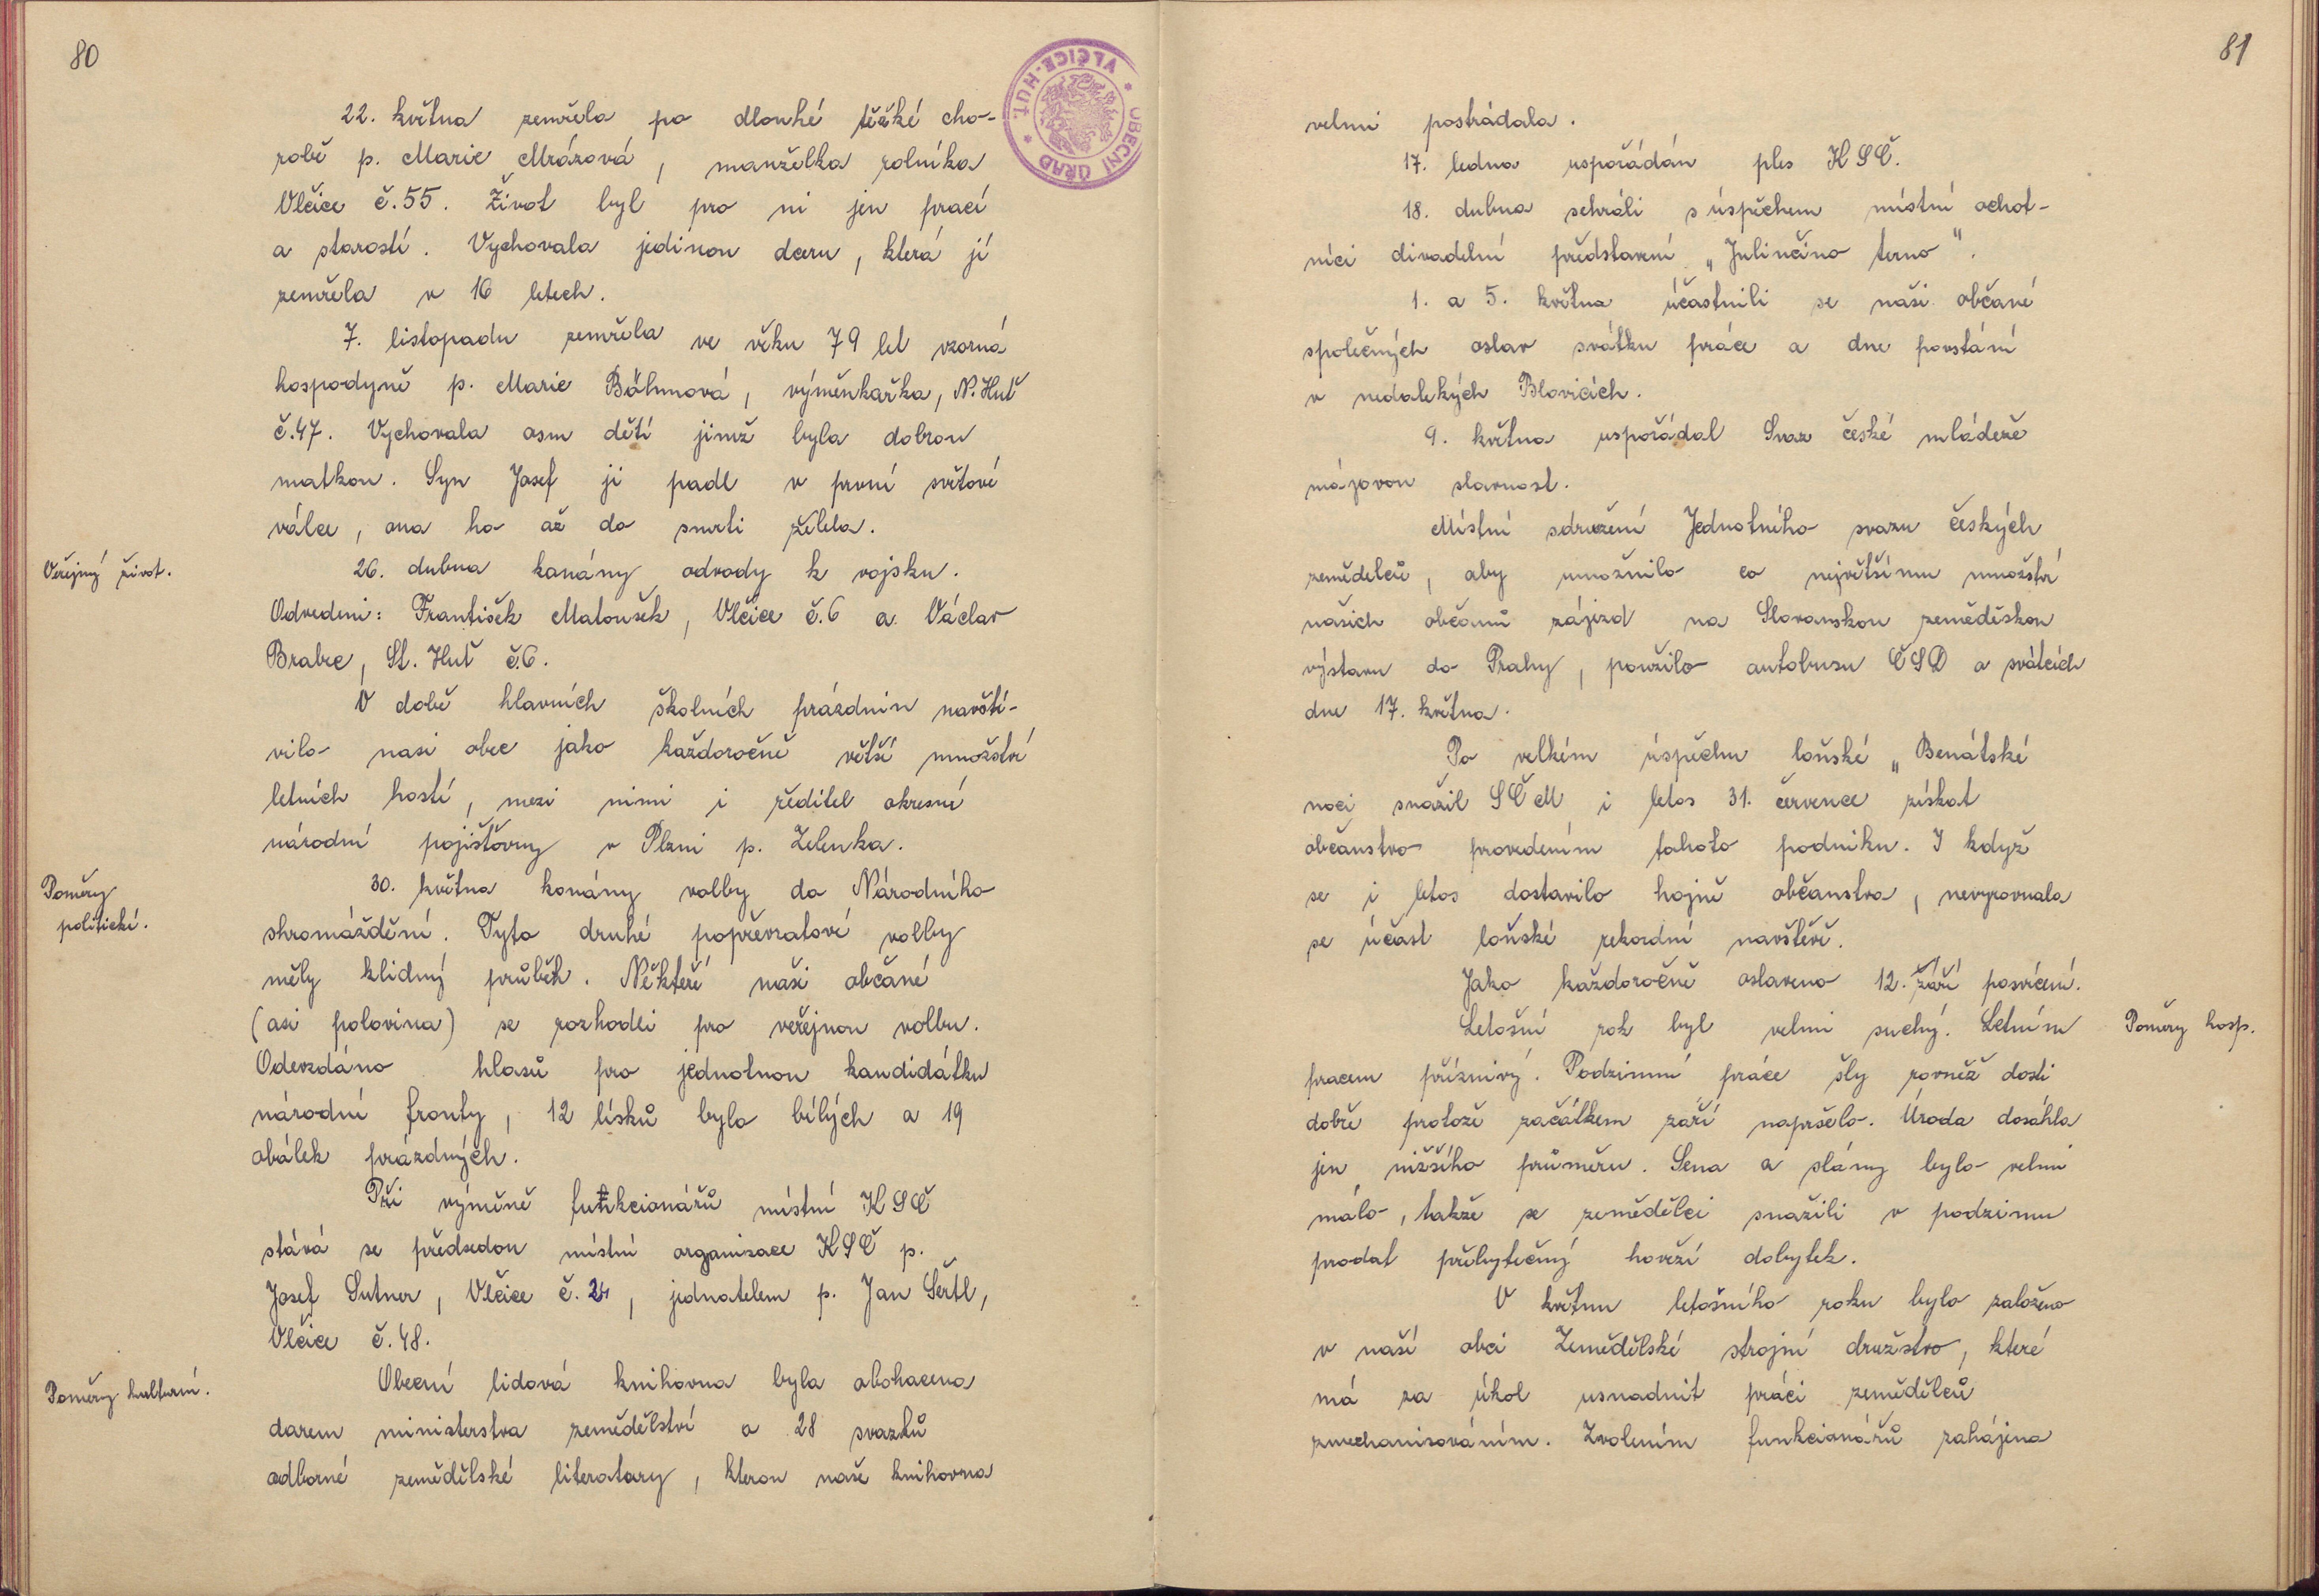 80
OBECNÍ ÚŘAD * VLČICE-HUŤ. *
22. května zemřela po dlouhé těžké cho-
robě p. Marie Mrázová, manželka rolníka
Vlčice č.55. Život byl pro ni jen prací
a starostí. Vychovala jedinou dceru, která jí
zemřela v 16 letech.
7. listopadu zemřela ve věku 79 let vzorná
hospodyně p. Marie Böhmová, výměnkařka, N. Huť
č.47. Vychovala osm dětí jimž byla dobrou
matkou. Syn Josef ji padl v první světové
válce, ona ho až do smrti želela.
Veřejný život.
26. dubna konány odvody k vojsku.
Odvedeni: František Matoušek, Vlčice č.6 a Václav
Brabec, St. Huť č.6.
V době hlavních školních prázdnin navští-
vilo nasi obec jako každoročně větší množství
letních hostí, mezi nimi i ředitel okresní
národní pojišťovny v Plzni p. Zelenka.
Poměry
politické.
30. května konány volby do Národního
shromáždění. Tyto druhé popřevratové volby
měly klidný průběh. Někteří naši občané
(asi polovina) se rozhodli pro veřejnou volbu.
Odevzdáno hlasů pro jednotnou kandidátku
národní fronty, 12 lísků bylo bílých a 19
obálek prázdných.
Při výměně funkcionářů místní KSČ
stává se předsedou místní organisace KSČ p.
Josef Sutner, Vlčice č. 24, jednatelem p. Jan Šertl,
Vlčice č.48.
Poměry kulturní.
Obecní lidová knihovna byla obohacena
darem ministerstva zemědělství o 28 svazků
odborné zemědělské literatury, kterou naše knihovna
81
velmi postrádala.
17. ledna uspořádán ples KSČ.
18. dubna sehráli s úspěchem místní ochot-
níci divadelní představení „Julinčino terno".
1. a 5. května účastnili se naši občané
společných oslav svátku práce a dne povstání
v nedalekých Blovicích.
9. května uspořádal Svaz české mládeže
májovou slavnost.
Místní sdružení Jednotného svazu českých
zemědelců, aby umožnilo co největšímu množství
našich občanů zájezd na Slovanskou zeměděskou
výstavu do Prahy, použilo autobusu ČSD o svátcích
dne 17. května.
Po velkém úspěchu loňské „Benátské
noci snažil SČM i letos 31. července získat
občanstvo provedením tohoto podniku. I když
se i letos dostavilo hojně občanstva, nevyrovnala
se účast loňské rekordní navštěvě.
Jako každoročně oslaveno 12. září posvícení.
Letošní rok byl velmi suchý. Letním
Poměry hosp.
pracem příznivý. Podzimní práce šly rovněž dosti
dobře protože začátkem září napršelo. Úroda dosáhla
jen nižšího průměru. Sena a slámy bylo velmi
málo, takže se zemědělci snažili v podzimu
prodat přebytečný hovězí dobytek.
V květnu letošního roku bylo založeno
v naší obci Zemědělské strojní družstvo, které
má za úkol usnadnit práci zemědělců
zmechanisováním. Zvolením funkcionářů zahájena